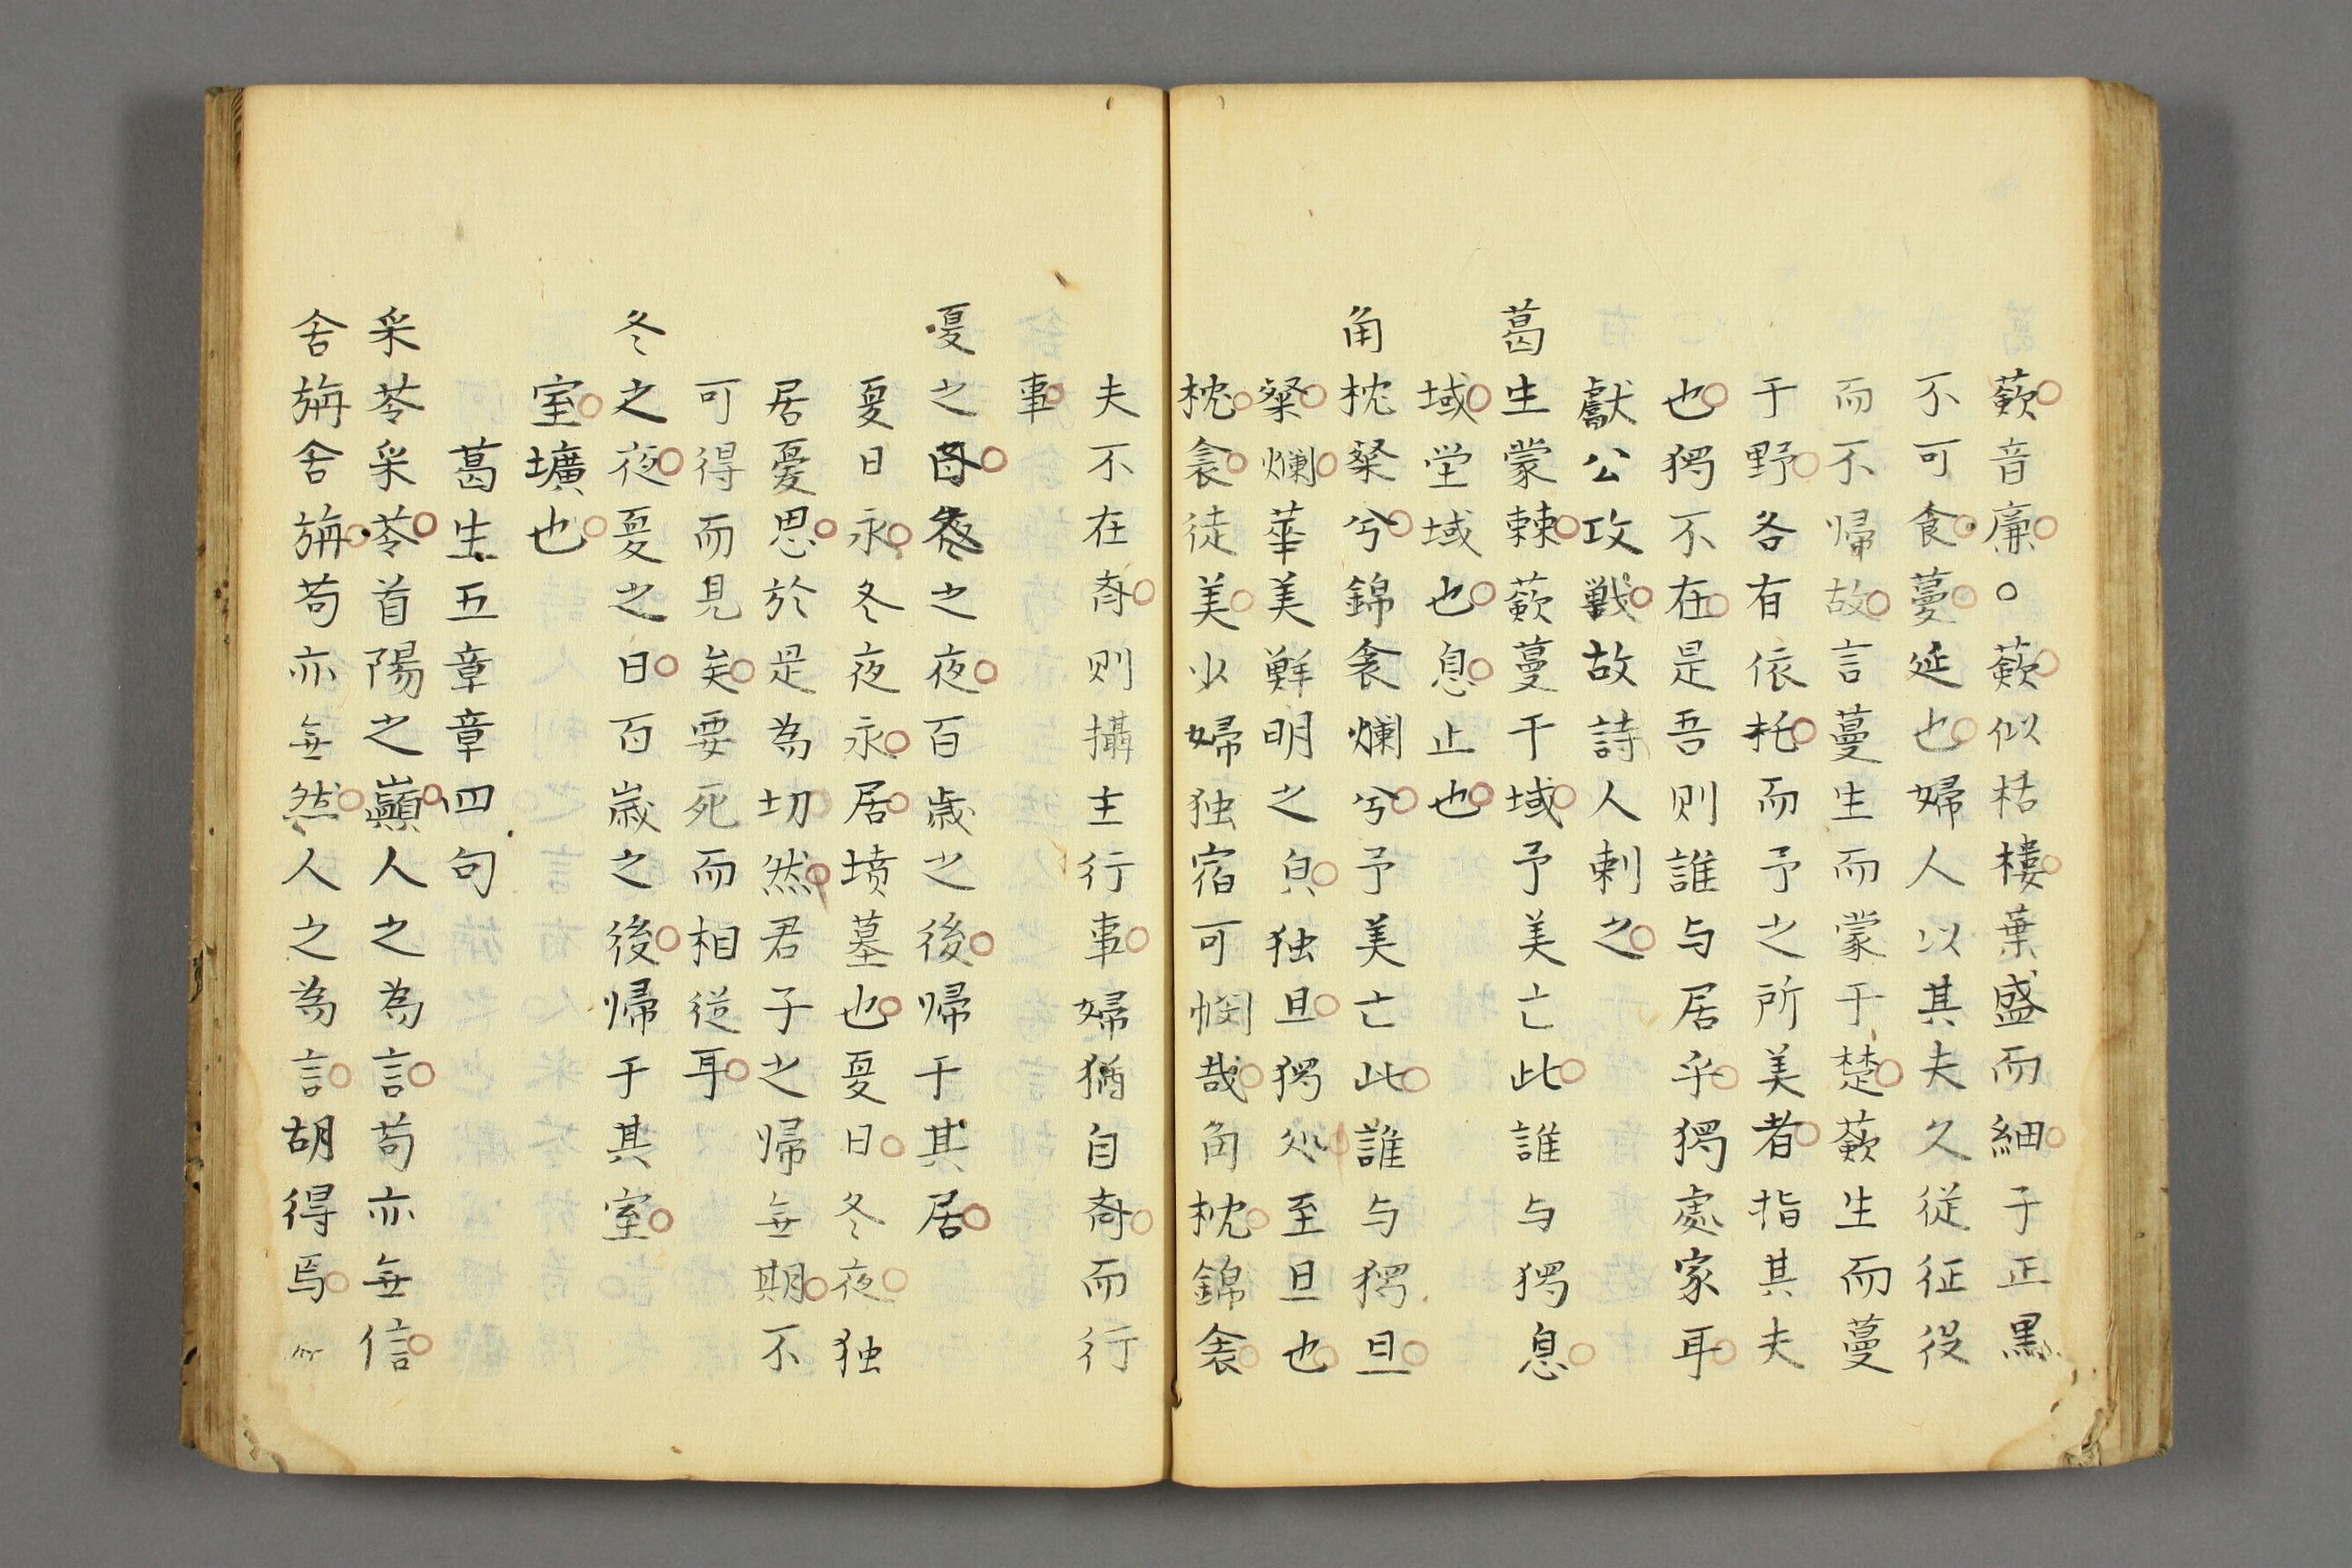 蘞音廉○蘞似栝樓葉盛而細子正黒
不可食蔓延也婦人以其夫久従征役
而不帰故言蔓生而蒙于楚蘞生而蔓
于野各有依托而予之所美者指其夫
也獨不在是吾則誰与居乎獨處家耳
獻公攻戦故詩人刺之
葛生蒙棘蘞蔓于域予美亡此誰与獨息
域塋域也息止也
角枕粲兮錦衾爛兮予美亡此誰与獨旦
粲爛華美鮮明之皃独旦獨処至旦也
枕衾徒美少婦独宿可憫哉角枕錦衾
夫不在斎則攝主行事婦猶自斎而行
事
夏之日冬之夜百歳之後帰于其居
夏日永冬夜永居墳墓也夏日冬夜独
居憂思於是為切然君子之帰無期不
可得而見矣要死而相從耳
冬之夜夏之日百歳之後帰于其室
室壙也
葛生五章章四句
采苓采苓首陽之巓人之為言苟亦無信
舎旃舎旃苟亦無然人之為言胡得焉